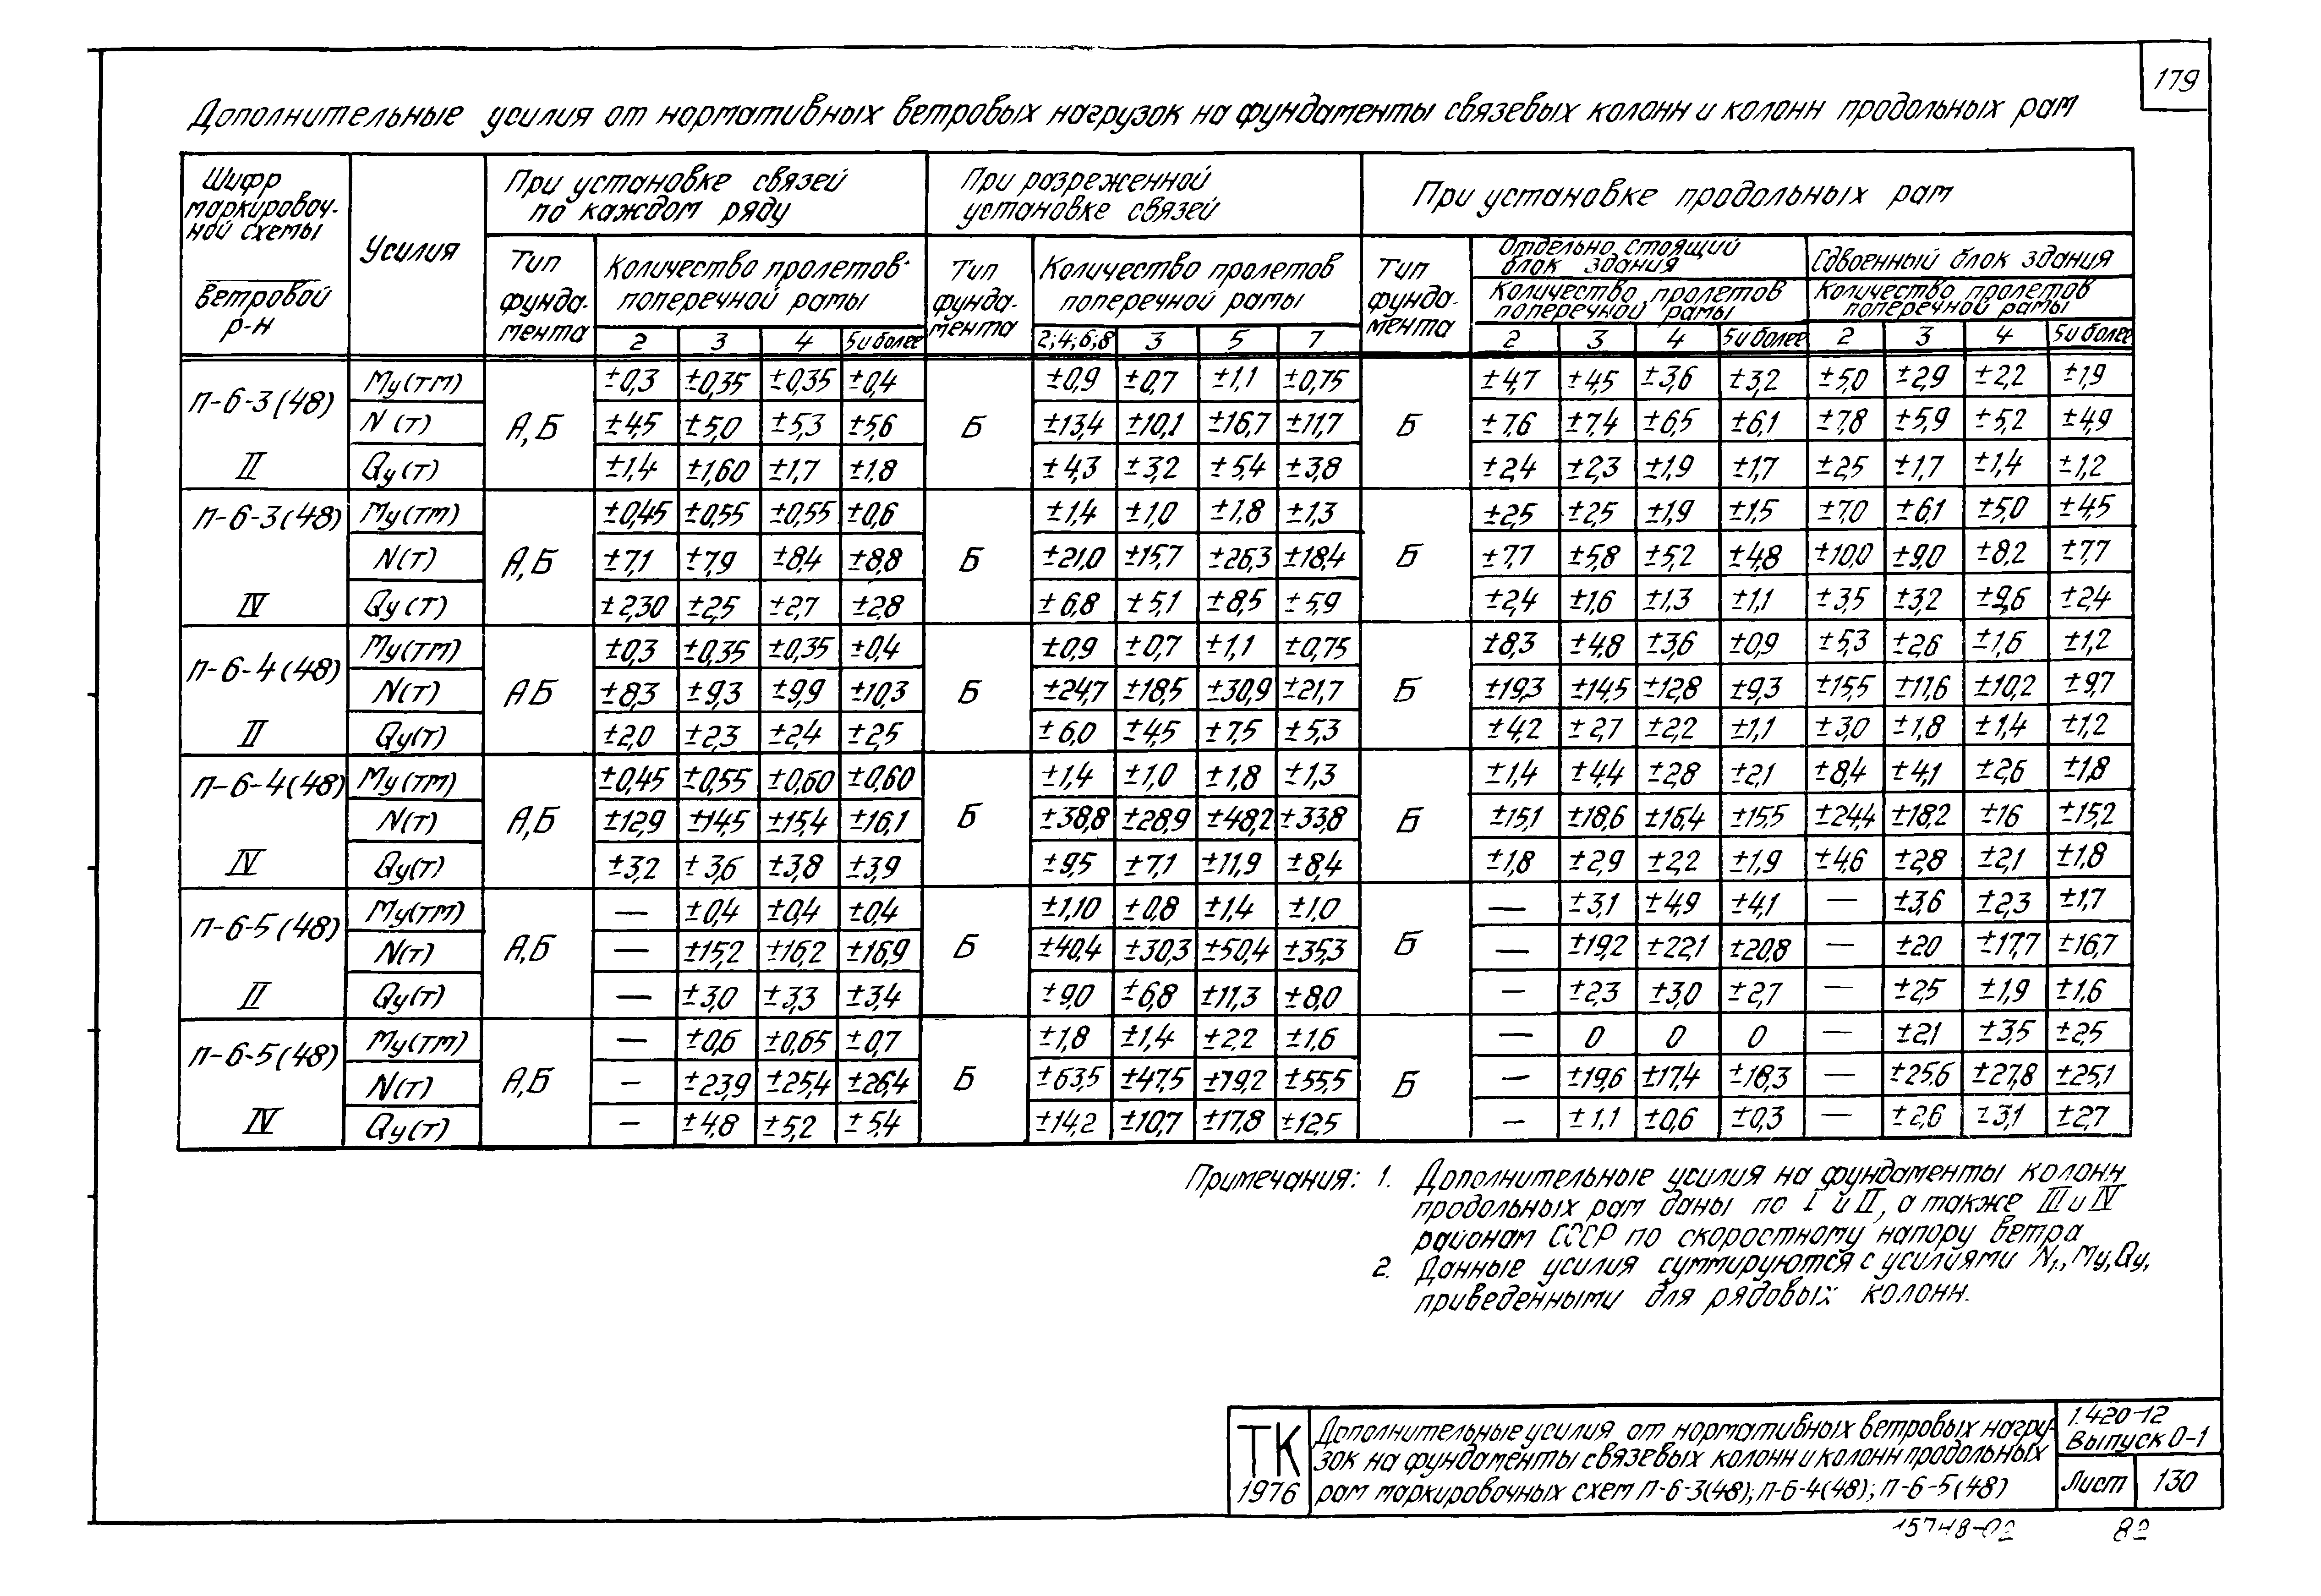 179
Дополнительные усилия от нормативных ветровых нагрузок на фундаменты связевых колонн и колонн продольных рам
Шифр маркировоч-ной схемы ветровой р-н | Усилия | При установке связей по каждом ряду | При разреженной установке связей | При установке продольных рам
Тип фунда-мента | Количество пролетов поперечной рамы | Тип фунда-мента | Количество пролетов поперечной рамы | Тип фунда-мента | Отдельно стоящий блок здания | Сдвоенный блок здания
Количество пролетов поперечной рамы | Количество пролетов поперечной рамы
2 | 3 | 4 | 5 и более | 2;4;6;8 | 3 | 5 | 7 | 2 | 3 | 4 | 5 и более | 2 | 3 | 4 | 5 и более
П-6-3(48) II | Му(тм) | А,Б | ±0,3 | ±0,35 | ±0,35 | ±0,4 | Б | ±0,9 | ±0,7 | ±1,1 | ±0,75 | Б | ±4,7 | ±4,5 | ±3,6 | ±3,2 | ±5,0 | ±2,9 | ±2,2 | ±1,9
N (т) | ±4,5 | ±5,0 | ±5,3 | ±5,6 | ±13,4 | ±10,1 | ±16,7 | ±11,7 | ±7,6 | ±7,4 | ±6,5 | ±6,1 | ±7,8 | ±5,9 | ±5,2 | ±4,9
Qу(т) | ±1,4 | ±1,60 | ±1,7 | ±1,8 | ±4,3 | ±3,2 | ±5,4 | ±3,8 | ±2,4 | ±2,3 | ±1,9 | ±1,7 | ±2,5 | ±1,7 | ±1,4 | ±1,2
П-6-3(48) IV | Му(тм) | А,Б | ±0,45 | ±0,55 | ±0,55 | ±0,6 | Б | ±1,4 | ±1,0 | ±1,8 | ±1,3 | Б | ±2,5 | ±2,5 | ±1,9 | ±1,5 | ±7,0 | ±6,1 | ±5,0 | ±4,5
N(т) | ±7,1 | ±7,9 | ±8,4 | ±8,8 | ±21,0 | ±15,7 | ±26,3 | ±18,4 | ±7,7 | ±5,8 | ±5,2 | ±4,8 | ±10,0 | ±9,0 | ±8,2 | ±7,7
Qу(т) | ±2,30 | ±2,5 | ±2,7 | ±2,8 | ±6,8 | ±5,1 | ±8,5 | ±5,9 | ±2,4 | ±1,6 | ±1,3 | ±1,1 | ±3,5 | ±3,2 | ±2,4
П-6-4(48) II | Му(тм) | АБ | ±0,3 | ±0,35 | ±0,35 | ±0,4 | Б | ±0,9 | ±0,7 | ±1,1 | ±0,75 | Б | ±8,3 | ±4,8 | ±3,6 | ±0,9 | ±5,3 | ±2,6 | ±1,6 | ±1,2
N(т) | ±8,3 | ±9,3 | ±9,9 | ±10,3 | ±24,7 | ±18,5 | ±30,9 | ±21,7 | ±19,3 | ±14,5 | ±12,8 | ±9,3 | ±15,5 | ±11,6 | ±10,2 | ±9,7
Qу(т) | ±2,0 | ±2,3 | ±2,4 | ±2,5 | ±6,0 | ±4,5 | ±7,5 | ±5,3 | ±4,2 | ±2,7 | ±2,2 | ±1,1 | ±3,0 | ±1,8 | ±1,4 | ±1,2
П-6-4(48) IV | Му(тм) | А,Б | ±0,45 | ±0,55 | ±0,60 | ±0,60 | Б | ±1,4 | ±1,0 | ±1,8 | ±1,3 | Б | ±1,4 | ±4,4 | ±2,8 | ±2,1 | ±8,4 | ±4,1 | ±2,6 | ±1,8
N(т) | ±12,9 | ±14,5 | ±15,4 | ±16,1 | ±38,8 | ±28,9 | ±48,2 | ±33,8 | ±15,1 | ±18,6 | ±16,4 | ±15,5 | ±24,4 | ±18,2 | ±16 | ±15,2
Qу(т) | ±3,2 | ±3,6 | ±3,8 | ±3,9 | ±9,5 | ±7,1 | ±11,9 | ±8,4 | ±1,8 | ±2,9 | ±2,2 | ±1,9 | ±4,6 | ±2,8 | ±2,1 | ±1,8
П-6-5(48) II | Му(тм) | А,Б | — | ±0,4 | ±0,4 | ±0,4 | Б | ±1,10 | ±0,8 | ±1,4 | ±1,0 | Б | — | ±3,1 | ±4,9 | ±4,1 | — | ±3,6 | ±2,3 | ±1,7
N(т) | — | ±15,2 | ±16,2 | ±16,9 | ±40,4 | ±30,3 | ±50,4 | ±35,3 | — | ±19,2 | ±22,1 | ±20,8 | — | ±20 | ±17,7 | ±16,7
Qу(т) | — | ±3,0 | ±3,3 | ±3,4 | ±9,0 | ±6,8 | ±11,3 | ±8,0 | — | ±2,3 | ±3,0 | ±2,7 | — | ±2,5 | ±1,9 | ±1,6
П-6-5(48) IV | Му(тм) | А,Б | — | ±0,6 | ±0,65 | ±0,7 | Б | ±1,8 | ±1,4 | ±2,2 | ±1,6 | Б | — | 0 | 0 | 0 | — | ±2,1 | ±3,5 | ±2,5
N(т) | — | ±23,9 | ±25,4 | ±26,4 | ±63,5 | ±47,5 | ±79,2 | ±55,5 | — | ±19,6 | ±17,4 | ±18,3 | — | ±25,6 | ±27,8 | ±25,1
Qу(т) | — | ±4,8 | ±5,2 | ±5,4 | ±14,2 | ±10,7 | ±17,8 | ±12,5 | — | ±1,1 | ±0,6 | ±0,3 | — | ±2,6 | ±3,1 | ±2,7
Примечания: 1. Дополнительные усилия на фундаменты колонн
продольных рам даны по I и II, а также III и IV
районам СССР по скоростному напору ветра
2. Данные усилия суммируются с усилиями N₁, Му, Qу,
приведенными для рядовых колонн.
ТК
1976
Дополнительные усилия от нормативных ветровых нагру-
зок на фундаменты связевых колонн и колонн продольных
рам маркировочных схем П-6-3(48); П-6-4(48); П-6-5(48)
1.420-12
Выпуск 0-1
Лист 130
15748-02